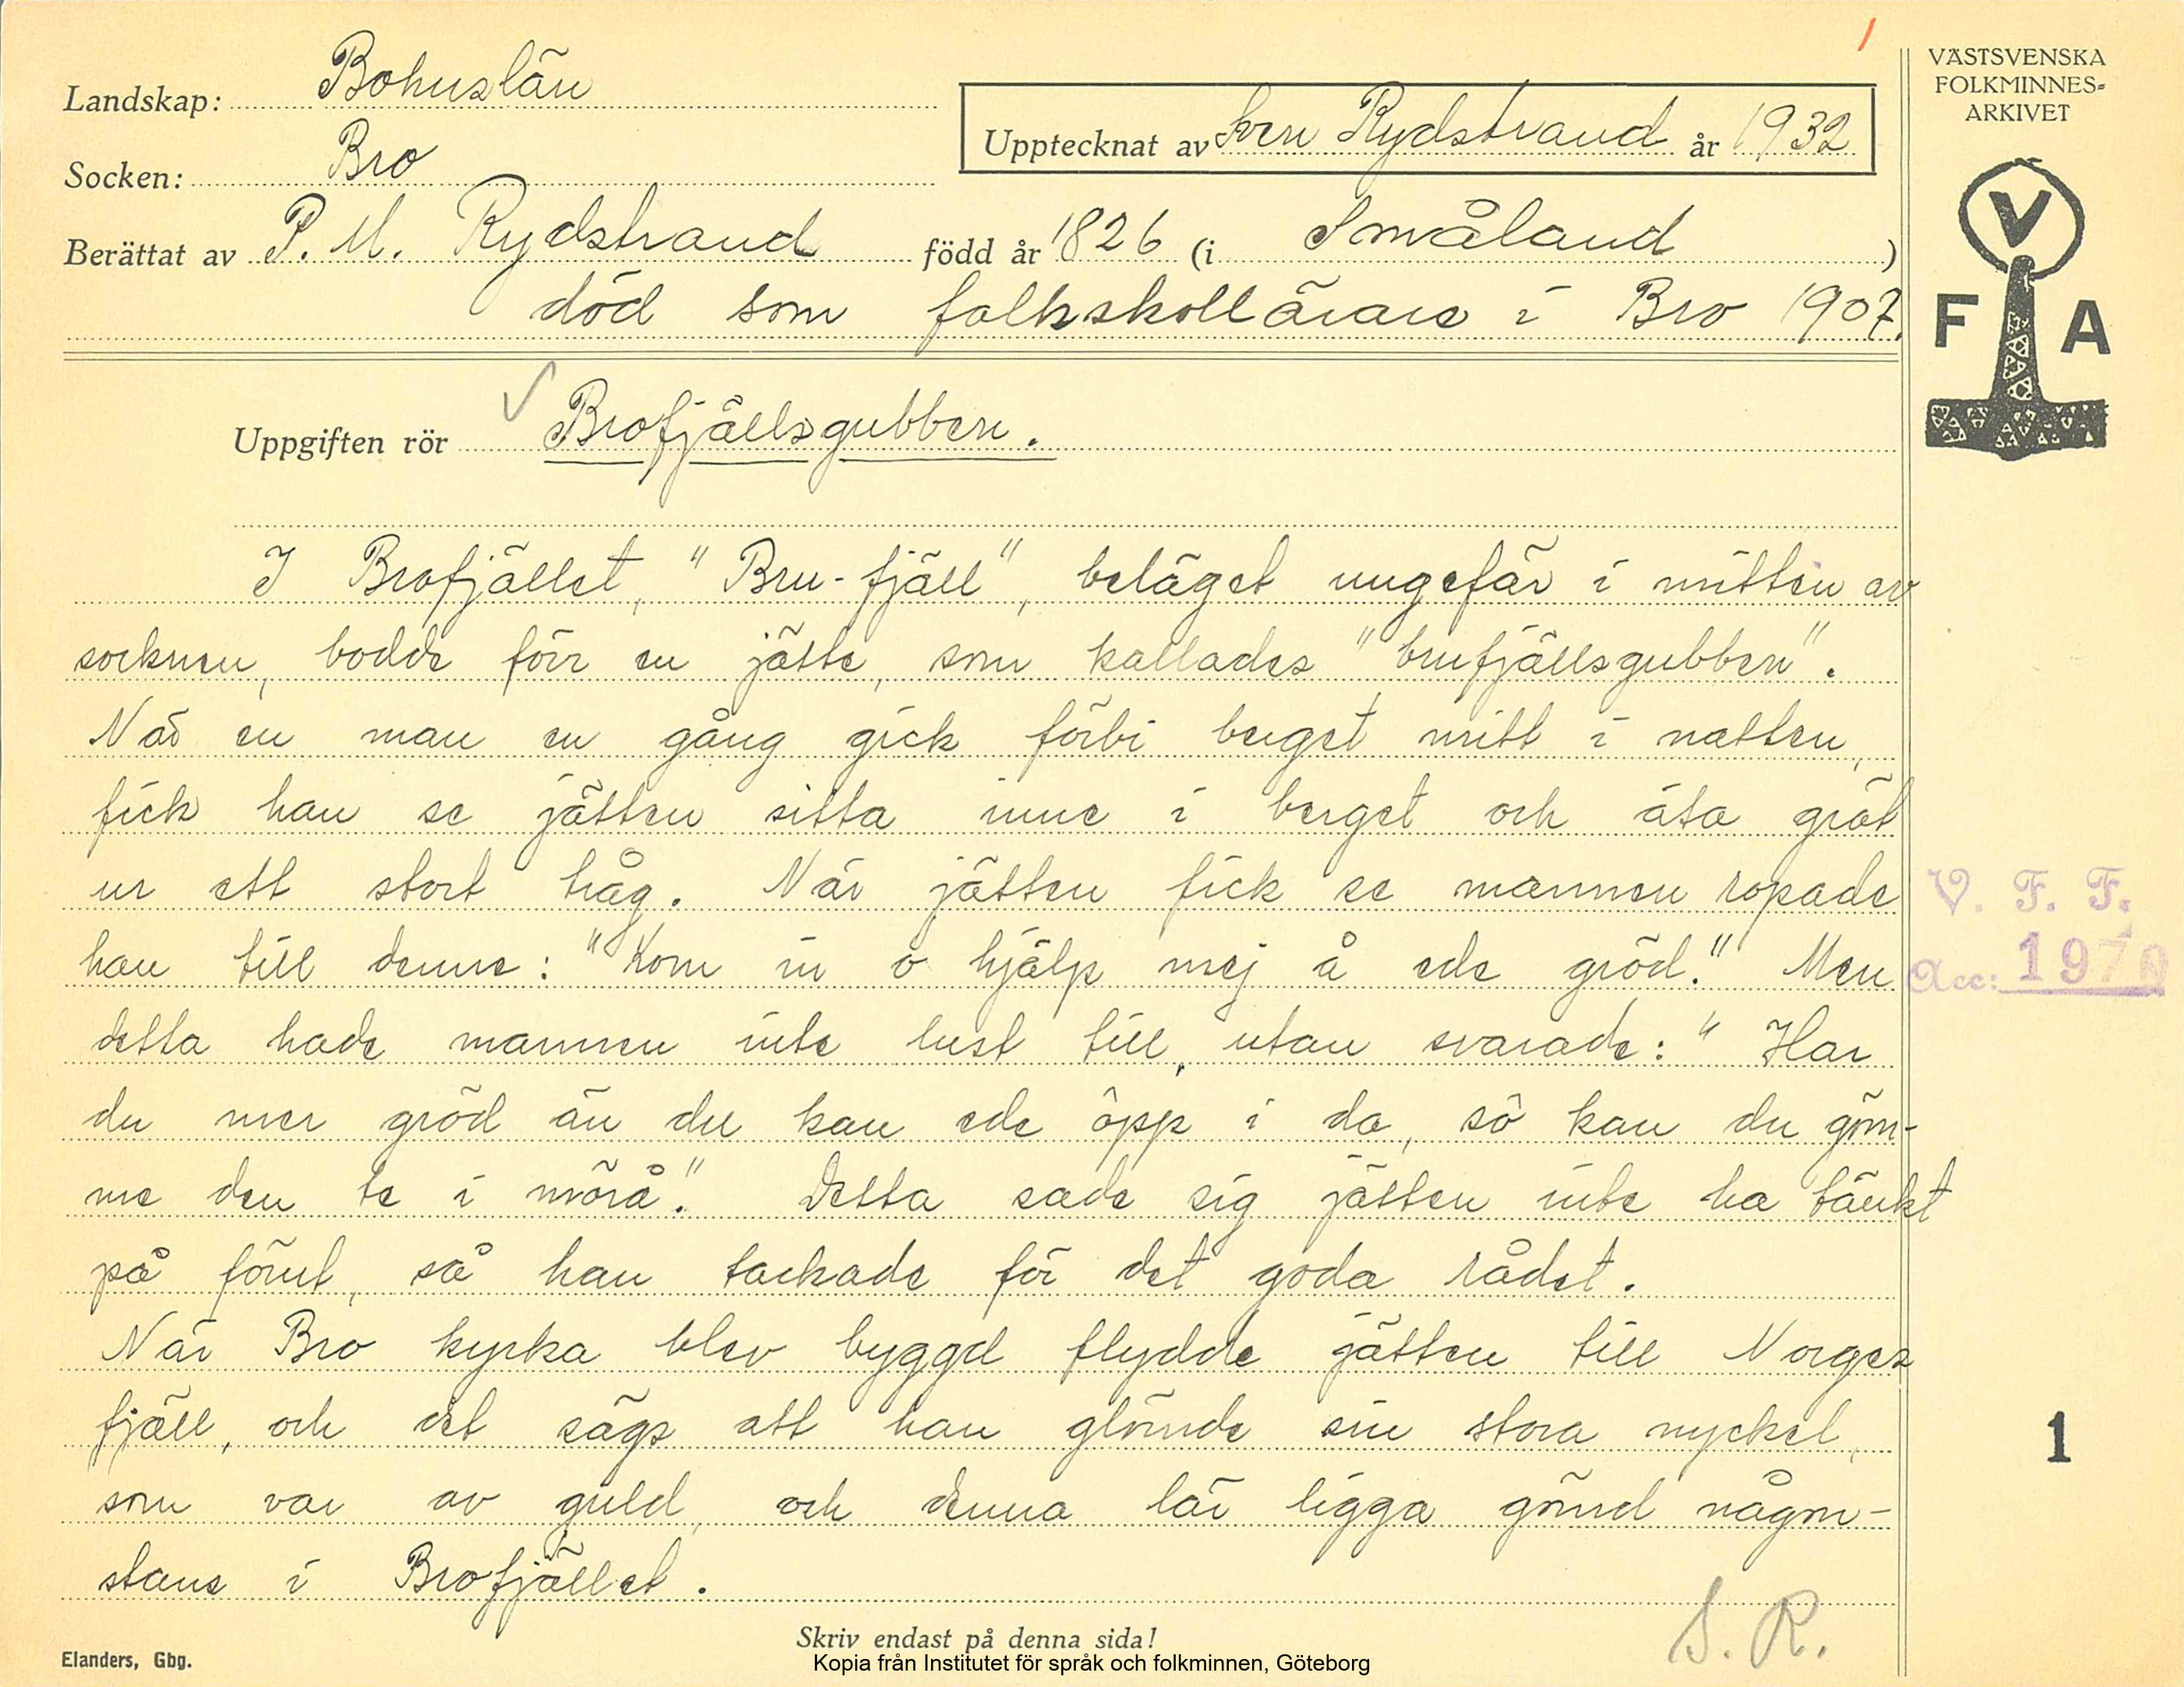 Landskap: Bohuslän
Socken: Bro
Upptecknat av Sven Rydstrand år 1932
Berättat av P. M. Rydstrand född år 1826 (i Småland)
död som folkskollärare i Bro 1907.
Uppgiften rör Brofjällsgubben.
I Brofjället, "Bru-fjäll", beläget ungefär i mitten av
socknen, bodde förr en jätte, som kallades "brufjällsgubben".
När en man en gång gick förbi berget mitt i natten,
fick han se jätten sitta inne i berget och äta gröt
ur ett stort tråg. När jätten fick se mannen ropade
han till denne: "Kom in o hjälp mej å ede gröd." Men
detta hade mannen inte lust till, utan svarade: "Har
du mer gröd än du kan ede öpp i da, sô kan du göm-
me den te i mörå." Detta sade sig jätten inte ha tänkt
på förut, så han tackade för det goda rådet.
När Bro kyrka blev byggd flydde jätten till Norges
fjäll, och det sägs att han glömde sin stora nyckel,
som var av guld, och denna lär ligga gömd någon-
stans i Brofjället.
S. R.
Skriv endast på denna sida!
Elanders, Gbg.
Kopia från Institutet för språk och folkminnen, Göteborg
1
VÄSTSVENSKA
FOLKMINNES-
ARKIVET
V
F A
V. F. F.
Acc: 1970
1